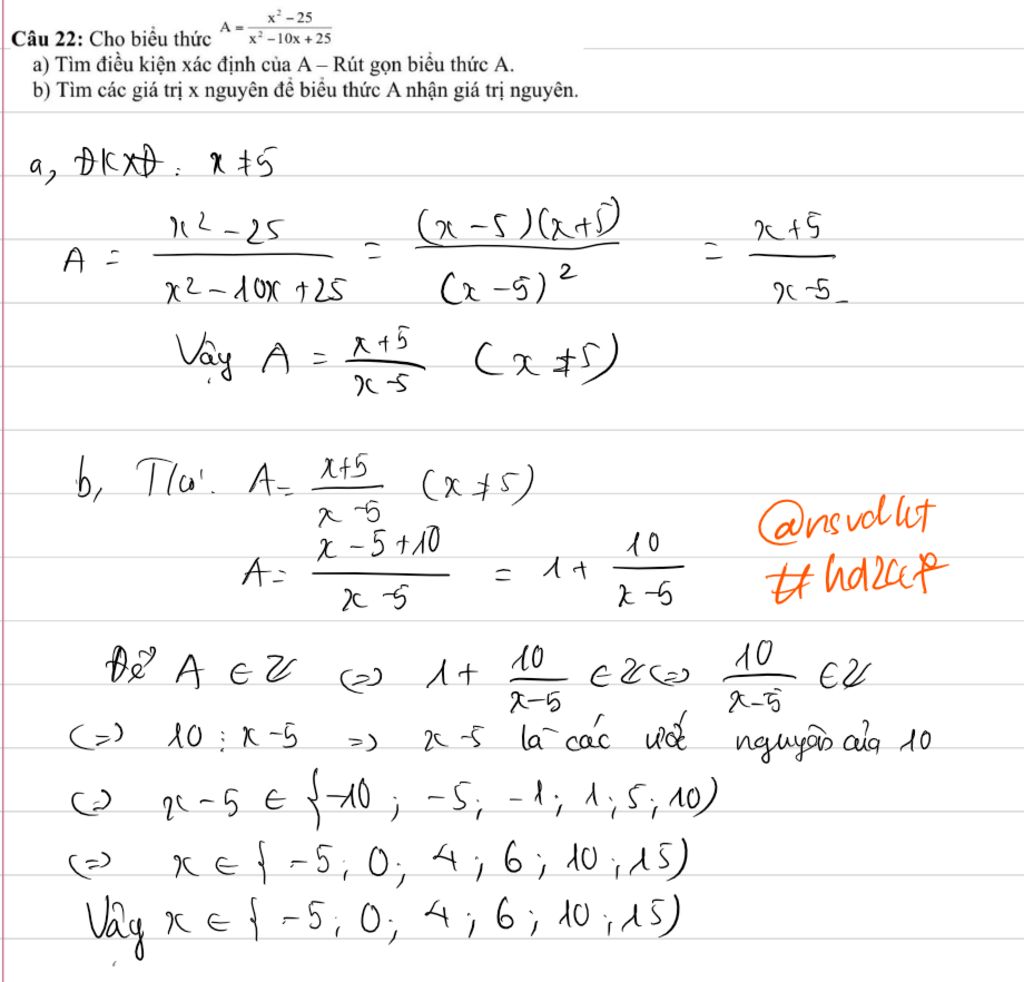 Câu 22: Cho biểu thức A = (x² − 25)/(x² − 10x + 25)
a) Tìm điều kiện xác định của A – Rút gọn biểu thức A.
b) Tìm các giá trị x nguyên để biểu thức A nhận giá trị nguyên.
a, ĐKXĐ: x ≠ 5
A = (x² − 25)/(x² − 10x + 25) = ((x − 5)(x + 5))/((x − 5)²) = (x + 5)/(x − 5)
Vậy A = (x + 5)/(x − 5) (x ≠ 5)
b, T/có: A = (x + 5)/(x − 5) (x ≠ 5)
A = (x − 5 + 10)/(x − 5) = 1 + 10/(x − 5)
@nsvdkt
Để A ∈ Z (=) 1 + 10/(x − 5) ∈ Z (=) 10/(x − 5) ∈ Z
(=) 10 ⋮ x − 5 => x − 5 là các ước nguyên của 10
(=) x − 5 ∈ {−10; −5; −1; 1; 5; 10)
(=) x ∈ { −5; 0; 4; 6; 10; 15)
Vậy x ∈ { −5; 0; 4; 6; 10; 15)